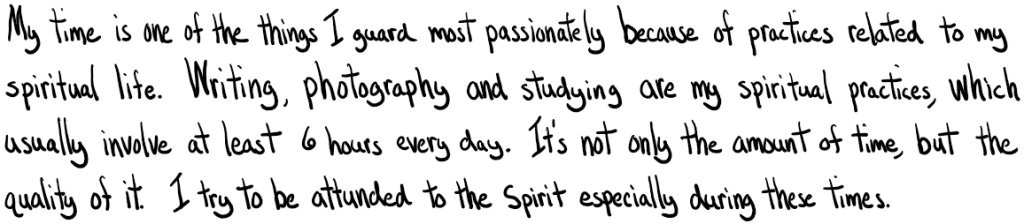 My time is one of the things I guard most passionately because of practices related to my
spiritual life. Writing, photography and studying are my spiritual practices, which
usually involve at least 6 hours every day. It's not only the amount of time, but the
quality of it. I try to be attunded to the Spirit especially during these times.